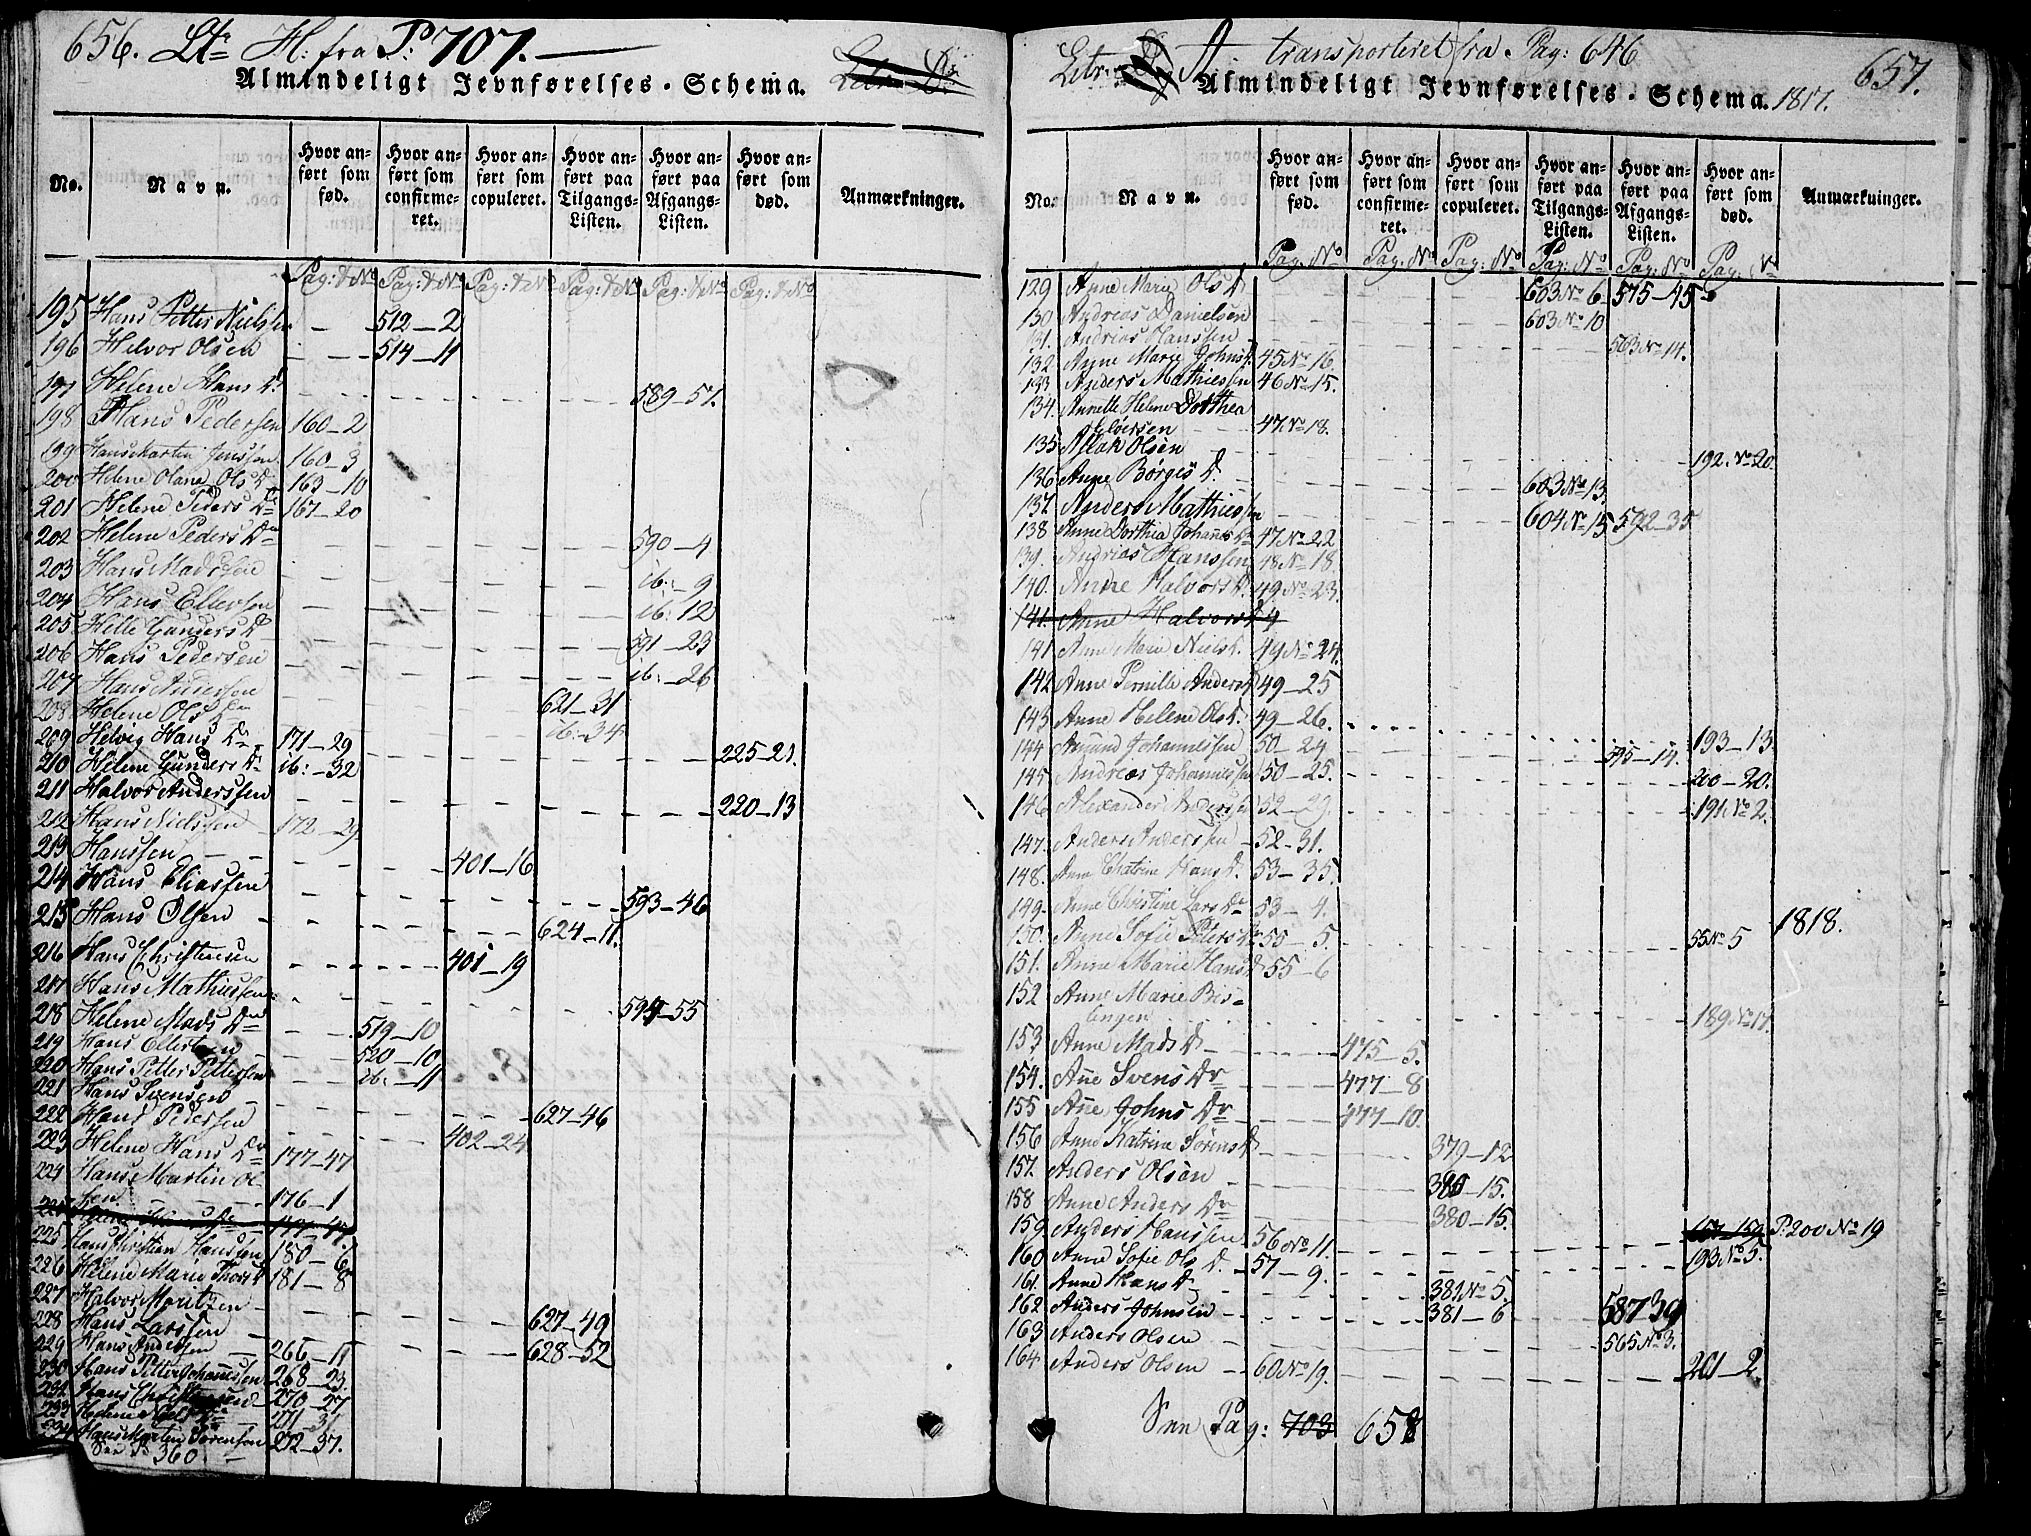 656. Ltr H: fra P: 707.
Almindeligt Jevnførelses-Schema.
No.
Navn.
Hvor anført som fød.
Hvor anført som confirmeret.
Hvor anført som copuleret.
Hvor anført paa Tilgangs-Listen.
Hvor anført paa Afgangs-Listen.
Hvor anført som død.
Anmærkninger.
Pag: & No Pag: & No Pag: & No Pag: & No Pag: & No Pag: & No
195 Hans Petter Nielsen 512-2
196 Helvor Olsen 514-11
197 Helene Hans D. 589-57.
198 Hans Pedersen 160-2
199 Hans Martin Jenssen 160-3
200 Helene Olana Ols D. 163-10
201 Helene Peders D. 167-20
202 Helene Peders D. 590-4
203 Hans Madssen ib:-9
204 Hans Ellersen ib: 12
205 Helle Gunders D. 591-23
206 Hans Pedersen ib:-26
207 Hans Andersen 621-31
208 Helene Ols ib:-34
209 Helvig Hans D. 171-29 225-21.
210 Helene Gunders D. ib:-32
211 Halvor Anderssen 220-13
212 Hans Nielssen 172-29
213 Hanssen 401-16
214 Hans Eliassen 593-46
215 Hans Olsen 624-11.
216 Hans Christensen 401-19
217 Hans Mathiessen 594-55
218 Helene Mads D. 519-10
219 Hans Ellersen 520-10
220 Hans Petter Pettersen ib:-11
221 Hans Svensen 627-46
222 Hans Pedersen 402-24
223 Helene Hans D. 177-47
224 Hans Martin Ol-
sen 176-1
225 Hans Christian Hanssen 180-6
226 Helene Marie Thors D. 181-8
227 Halvor Moritzen 627-49
228 Hans Larssen 628-52
229 Hans Andersen 266-11
230 Hans Petter Johannessen 268-23.
232 Hans 270-27
233 Helene 271-31
234 Hans Martin Sørensen 272-37.
See P. 360.
Litr. A transporteret fra Pag: 646 657.
Almindeligt Jevnførelses-Schema. 1817.
No.
Navn.
Hvor anført som fød.
Hvor anført som confirmeret.
Hvor anført som copuleret.
Hvor anført paa Tilgangs-Listen.
Hvor anført paa Afgangs-Listen.
Hvor anført som død.
Anmærkninger.
Pag: No Pag: No Pag: No Pag: No Pag: No Pag: No
129 Anne Marie Ols D. 603 No 6 575-45
130 Andreas Danielsen 603 No 10
131. Andreas Hanssen 563 No 14.
132 Anne Marie Johns D. 45 No 16
133 Anders Mathiessen 46 No 15.
134. Annette Helene Dorthea
47. No 18.
135 Aslak Olsen 192. No 20.
136 Anne Børges D. 603 No 13
137 Anders Mathiessen 604 No 15 592-35
138 Anne Dorthea Johans D. 47 No 22
139. Andreas Hanssen 48 No 18
140. Anne Halvors D. 49 No 23.
141. Anne Halvors D. 4
141 Anne Marie Niels D. 49 No 24.
142 Anne Pernille Anders D. 49-25
143 Anne Helene Ols D. 49-26. 193-13.
144 Amund Johannessen 50-24 595-14.
145 Andreas Johannessen 50-25. 200-20.
146 Alexander Anderssen 52-29 191 No 2.
147. Anders Anderssen 52-31.
148. Anne Chatrine Hans D. 53-35.
149 Anne Christine Lars D. 53-4.
150. Anne Sofie Peters D. 55-5. 55 No 5 1818.
151. Anne Marie Hans D. 55-6
152 Anne Marie Bis-
lingen 189 No 17.
153 Anne Mads D. 475-5.
154. Ane Svens Dr 477-8
155 Ane Johns Dr 477-10.
156 Anne Katrine Sørens D. 379-12
157. Anders Olsen 380-15.
158 Anne Anders Dr 380-15.
159. Anders Hanssen 56 No 11. P. 200 No 19
160 Anne Sofie Ols D. 57-9. 193 No 5.
161. Anne Hans D. 381 No 5.
162 Anders Johnsen 381-6 587 39
163 Anders Olsen 565 No 3.
164 Anders Olsen 60 No 19. 201-2.
See Pag: 703 658